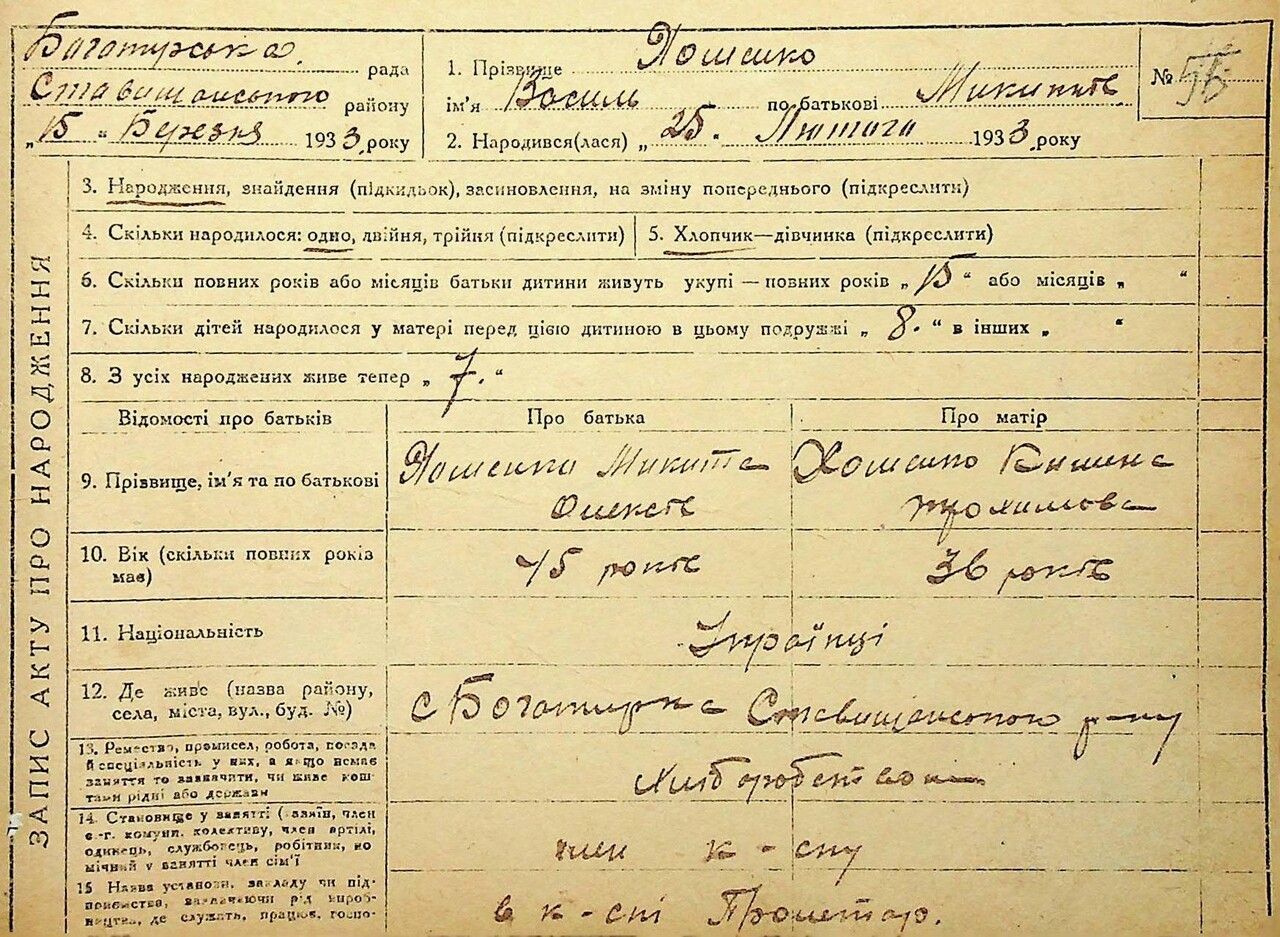 Богатирська рада
Ставищанського району
„15" Березня 1933 року
1. Прізвище Хоменко
ім'я Василь по батькові Микитов.
2. Народився(лася) „25. Лютого 1933 року
№
ЗАПИС АКТУ ПРО НАРОДЖЕННЯ
3. Народження, знайдення (підкидьок), засиновлення, на зміну попереднього (підкреслити)
4. Скільки народилося: одно, двійня, трійня (підкреслити)
5. Хлопчик—дівчинка (підкреслити)
6. Скільки повних років або місяців батьки дитини живуть укупі — повних років „15" або місяців „ "
7. Скільки дітей народилося у матері перед цією дитиною в цьому подружжі „8." в інших „ "
8. З усіх народжених живе тепер „7."
Відомості про батьків Про батька Про матір
9. Прізвище, ім'я та по батькові
Хоменко Микита
Олексів
Хоменко
Трохимова
10. Вік (скільки повних років має)
45 років
36 років
11. Національність
Українці
12. Де живе (назва району,
села, міста, вул., буд. №)
с Богатирка Ставищанського р-ну
13. Ремество, промисел, робота, посада
й спеціяльність у них, а якщо немає
заняття то зазначити, чи живе кош-
тами рідні або держави
Хліборобство
14. Становище у занятті (хазяїн, член
с.-г. комуни, колективу, член артілі,
одинець, службовець, робітник, по
мічний у занятті член сім'ї
член к-спу
15 Назва установи, закладу чи під-
приємства, зазначаючи рід вироб-
ництва, де служить, працює, госпо-
в к-спі Пролетар.